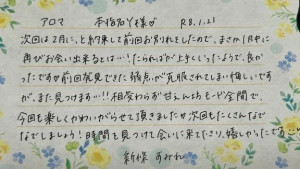 アロマ 本指名Y様♡ R8.1.21
次回は2月に、と約束して前回お別れをしたので、まさか1月中に
再びお会い出来るとは…!たらればが上手くいったようで、良か
ったです♡前回発見できた弱点が克服されてしまい悔しいです
が、また見つけます…!!相変わらず甘えんぼモード全開で、
今回も楽しくかわいがらせて頂きました♡次回もたくさんなで
なでしましょう!時間を見つけて会いに来て下さり、嬉しかったです
新條 すみれ